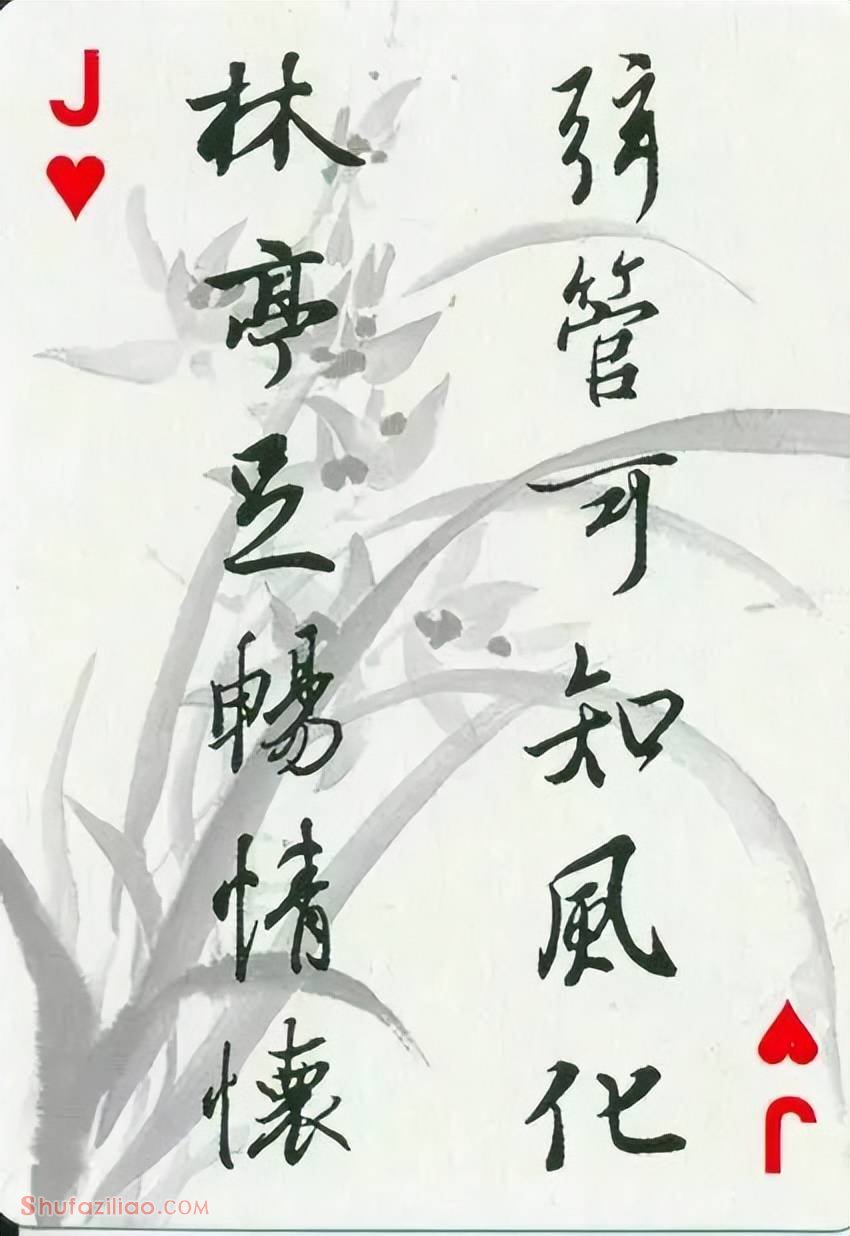 J
弦管可知風化
林亭足暢情懷
J
Shufaziliao.COM